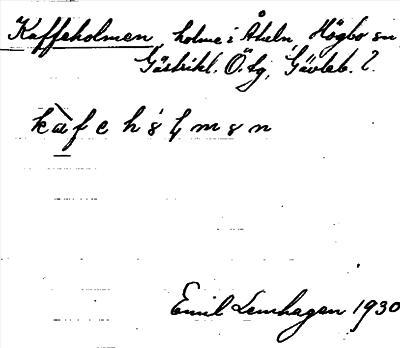 Kaffeholmen, holme i Åheln Högbo sn
Gästrikl. Ö. dg, Gävleb. l.
kafehölmen
Emil Lenhagen 1930